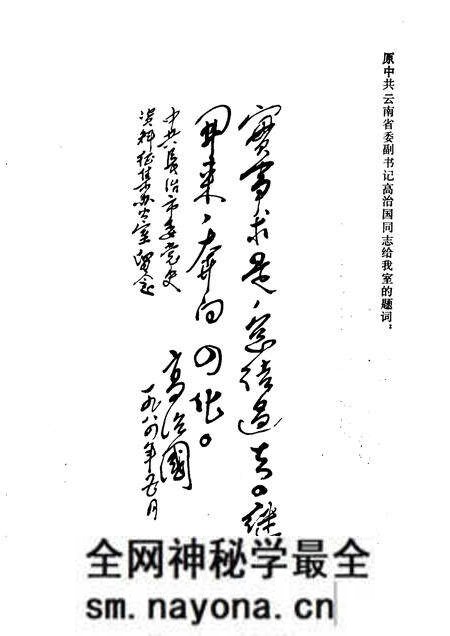 原中共云南省委副书记高治国同志给我室的题词：
实事求是，总结过去。继
开来，奔向四化。
中共长治市委党史
资料征集办公室留念
高治国
一九八四年五月
全网神秘学最全
sm.nayona.cn